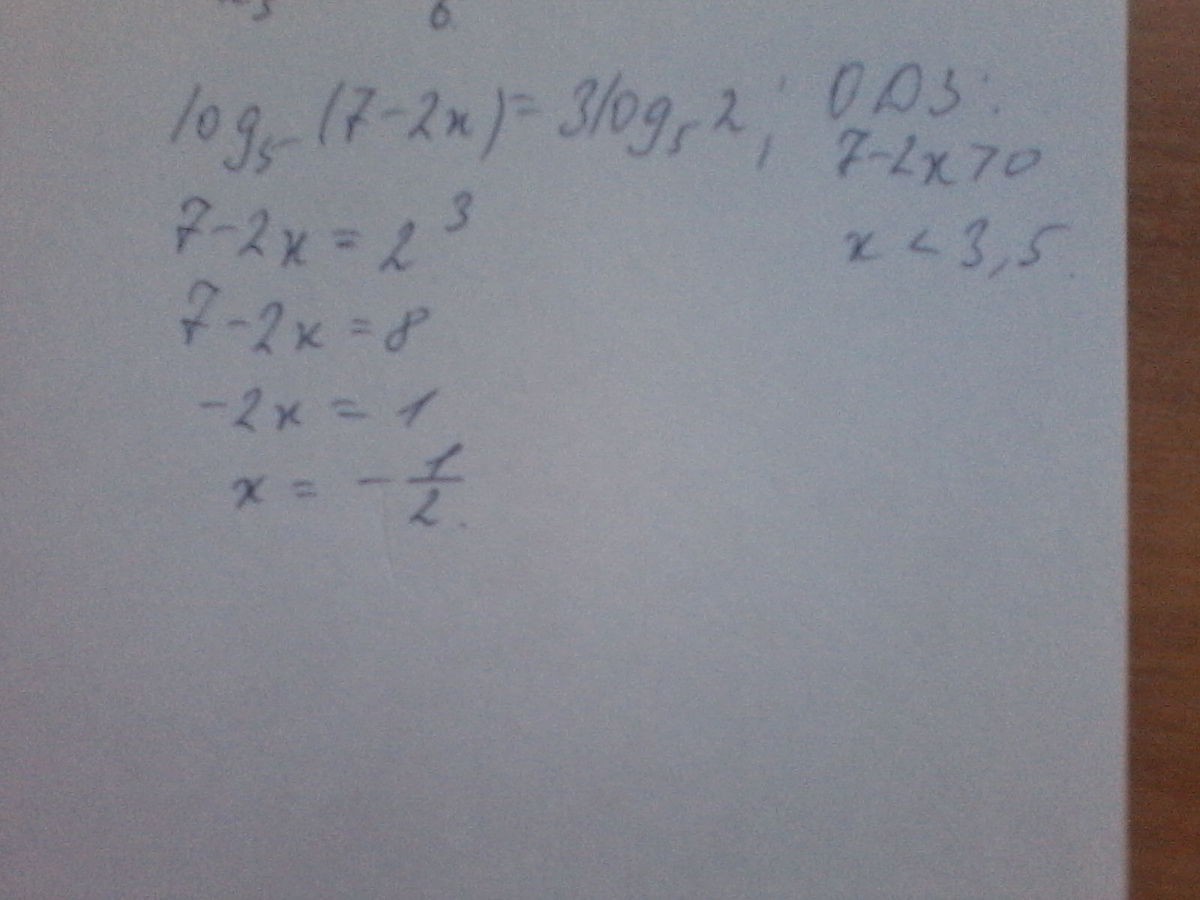 6
log₅(7-2x) = 3log₅2; ОДЗ:
7-2x>0
7-2x = 2³
x < 3,5.
7-2x = 8
-2x = 1
x = -1/2.